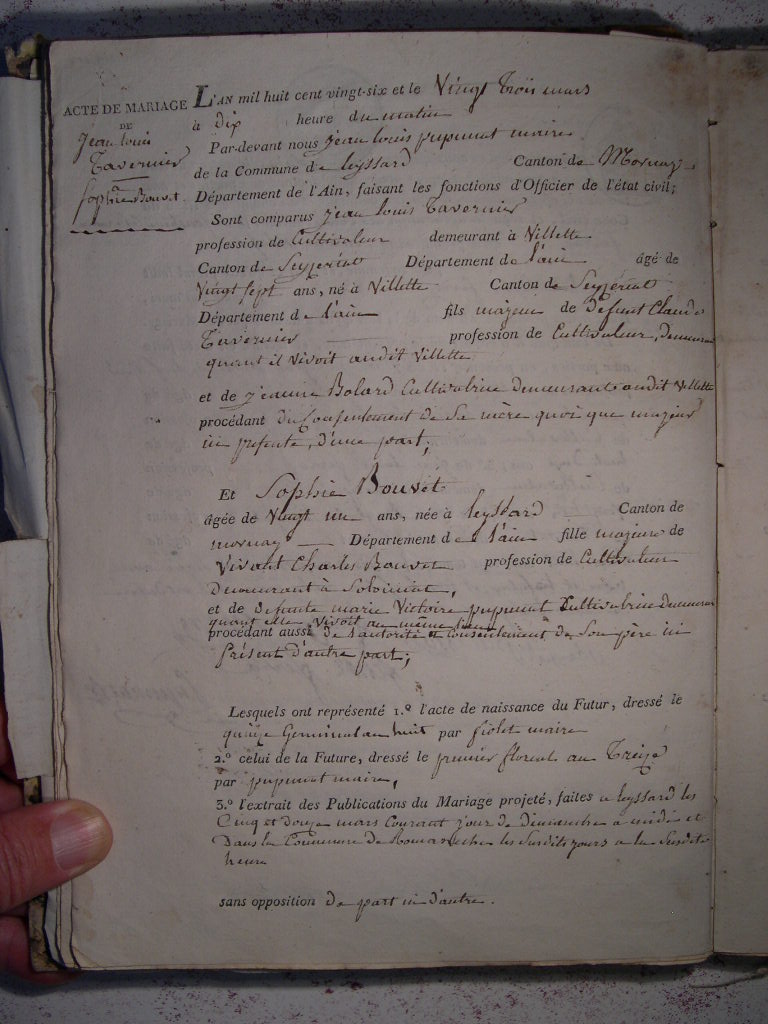 ACTE DE MARIAGE
DE
Jean louis
Tavernier
a
Sophie Bouvet.
L'AN mil huit cent vingt-six et le Vingt Trois mars
à Dix heure du matin
Par-devant nous jean louis pupunat maire
de la Commune de leyssard Canton de Mornay
Département de l'Ain, faisant les fonctions d'Officier de l'état civil;
Sont comparus jean louis Tavernier
profession de Cultivateur demeurant à Villette
Canton de Département de l'ain âgé de
Vingt sept ans, né à Villette Canton de
Département de l'ain fils majeur de Défunt Claude
Tavernier profession de Cultivateur, Demeurant
quant il Vivoit audit Villette
et de jeanne Bolard Cultivatrice demeurante audit Villette
procédant du Consentement de Sa mère quoi que majeur
ici présente, d'une part;
Et Sophie Bouvet
âgée de Vingt un ans, née à leyssard Canton de
mornay Département de l'ain fille majeure de
Vivant Charles Bouvet profession de Cultivateur
Demeurant à Solomiat,
et de Défunte marie Victoire pupunat Cultivatrice demeurant
quant elle Vivoit au même lieu
procédant aussi de l'autorité et Consentement de Son père ici
Présent D'autre part;
Lesquels ont représenté 1.º l'acte de naissance du Futur, dressé le
quinze Germinal an huit par fiolet maire
2.º celui de la Future, dressé le premier floreal an Treize
par pupunat maire,
3.º l'extrait des Publications du Mariage projeté, faites a leyssard les
Cinq et douze mars Courant jour de Dimanche à midi et
Dans la Commune de les Susdits jours a la Susdite
heure
sans opposition de part ni d'autre.